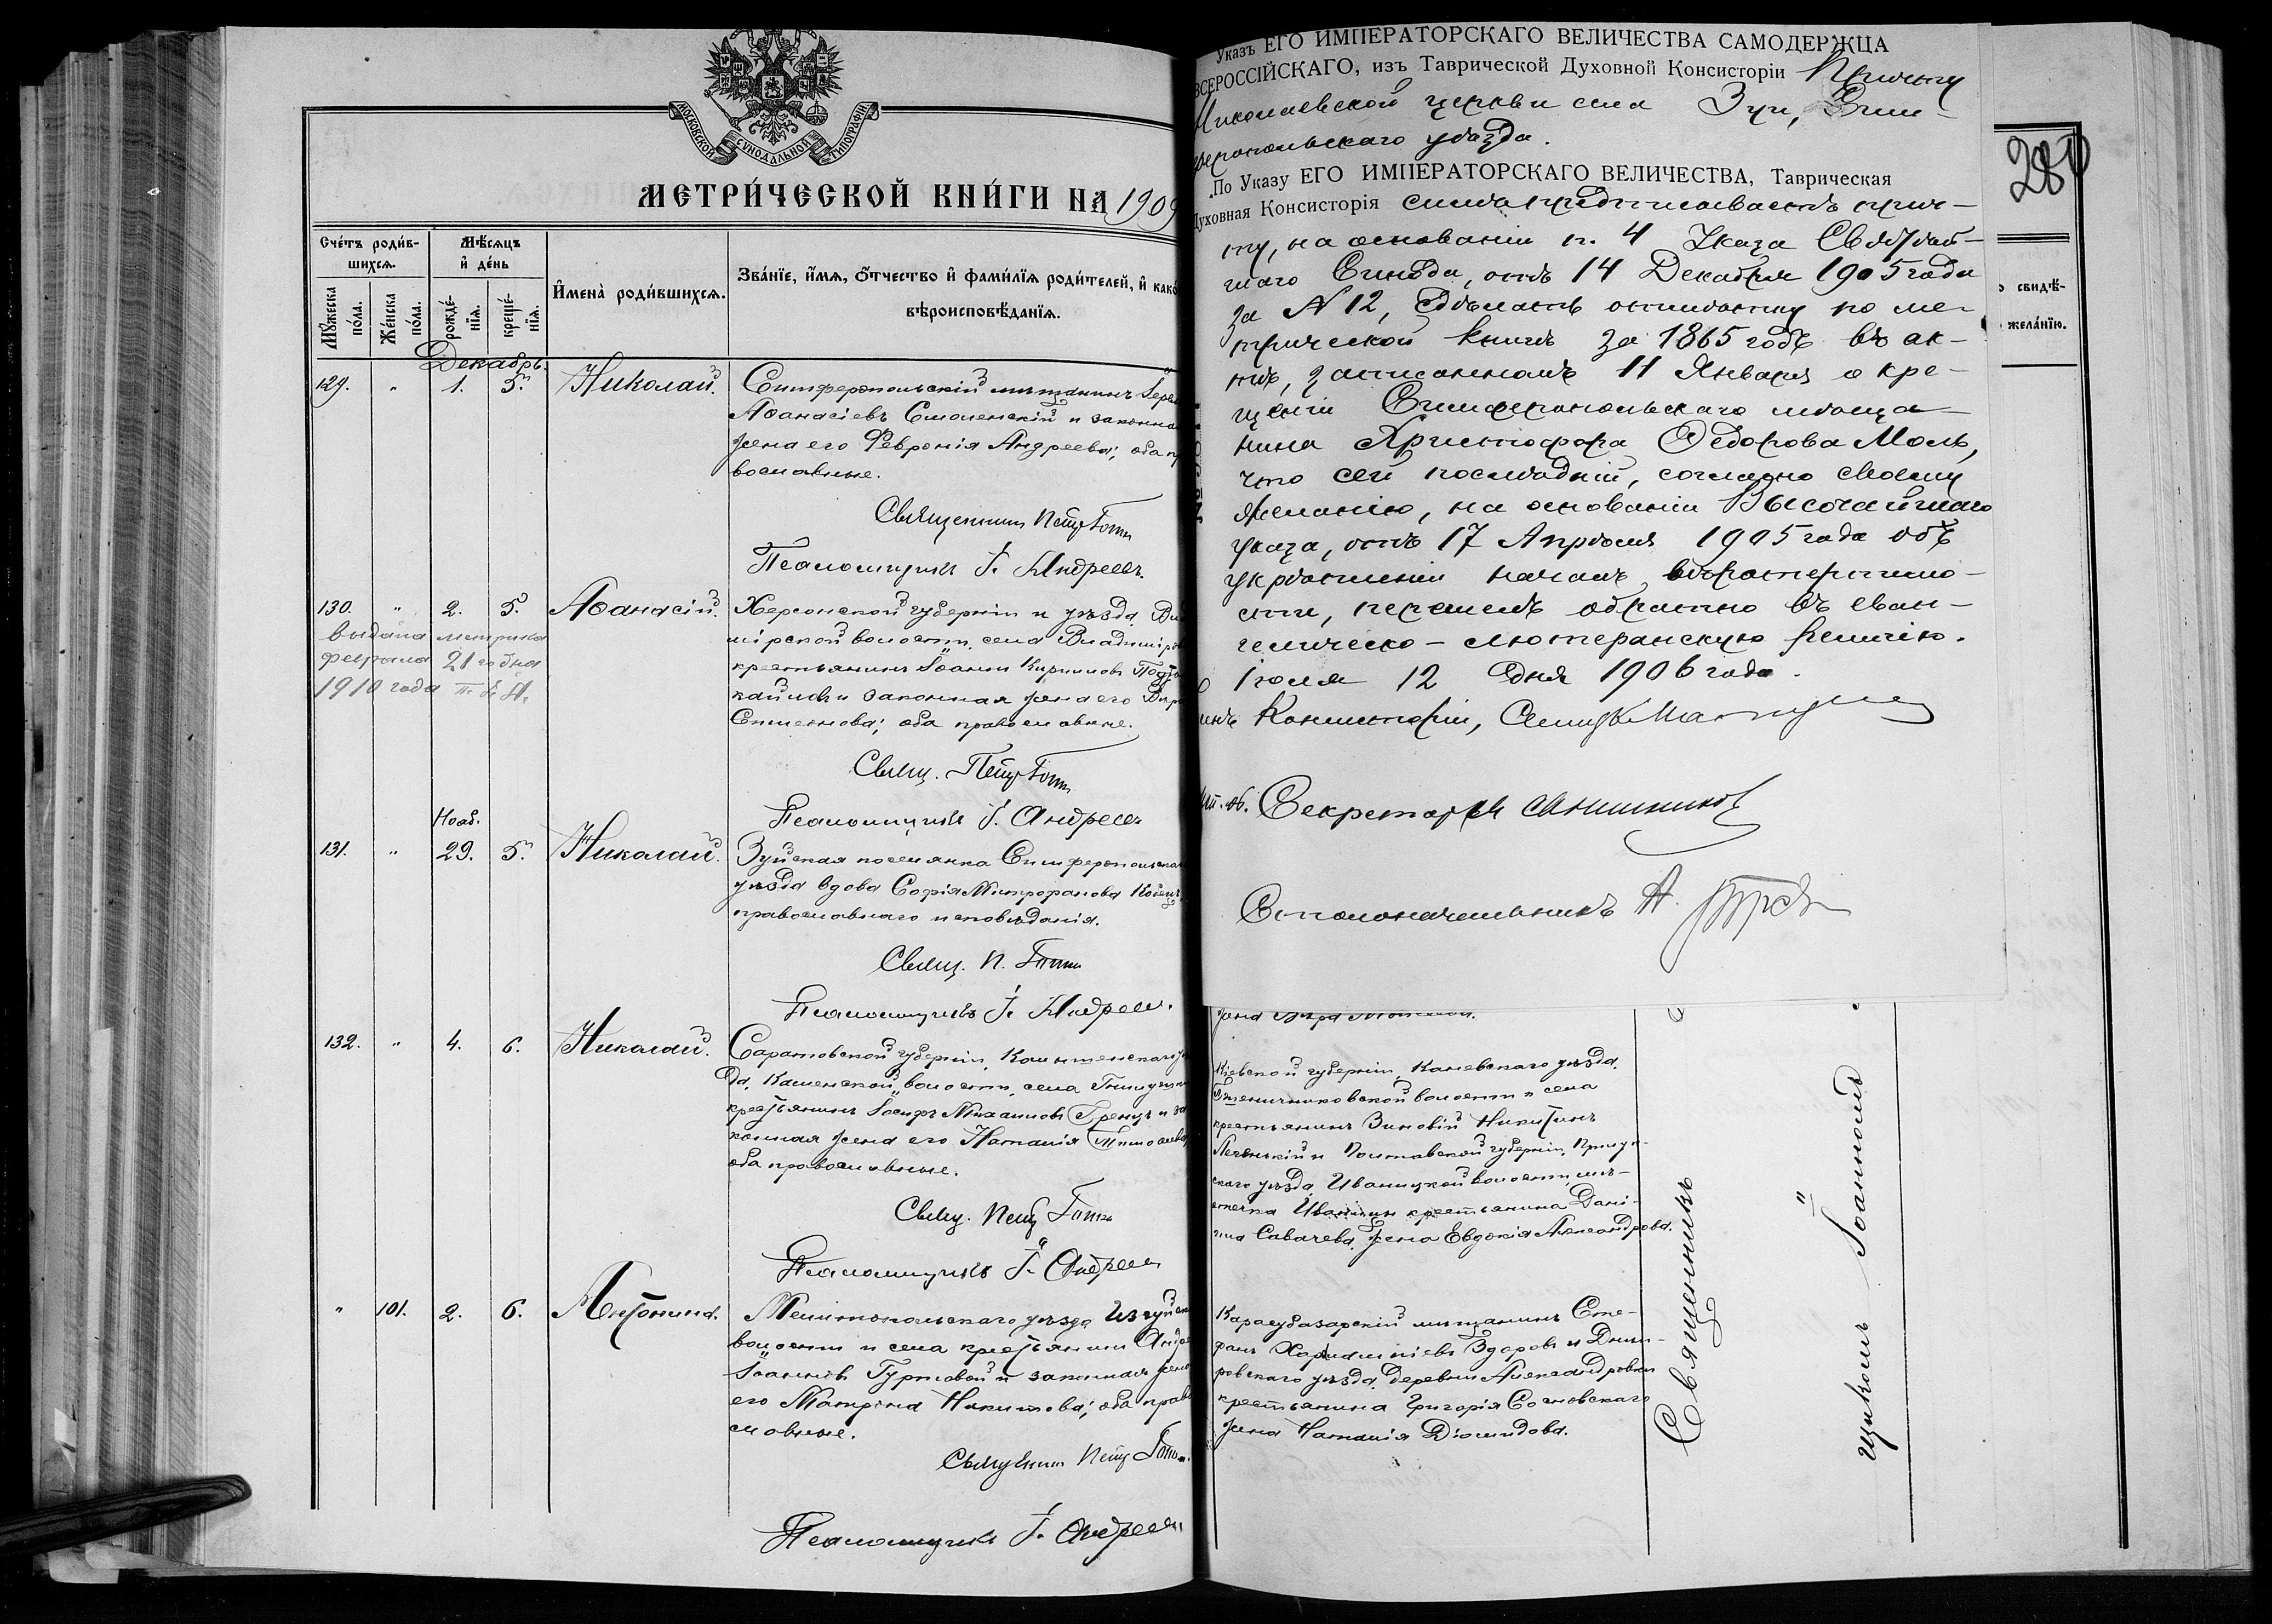 МОСКОВСКОЙ СУНОДАЛЬНОЙ ТИПОГРАФІИ
МЕТРИ́ЧЕСКОЙ КНИ́ГИ НА 1909
Сче́тъ роди́в-
шихсѧ.
Мѣ́сѧцъ
и҆ де́нь
Мꙋ́жеска по́ла.
Же́нска по́ла.
рожде́-нїѧ.
креще́-нїѧ.
И҆мена̀ роди́вшихсѧ.
Зва́нїе, и҆́мѧ, ѻ҆́тчество и҆ фами́лїѧ роди́телей, и҆ како
вѣроисповѣ́данїѧ.
Декабрь.
129. " 1. 5. Николай.
Симферопольскій мѣщанинъ
Аѳанасіевъ Смоленскій и законна
жена его Февронія Андреева; оба пр
вославные.
Священникъ Петръ
Псаломщикъ І. Андреевъ.
130. " 2. 5. Аѳанасій.
выдана метрика
февраля 21 го дня
1910 года П. І. А.
Херсонской губерніи и уѣзда Вл
мірской волости, села Владимиров
крестьянинъ Іоаннъ Кирилловъ
и законная жена его
оба православные.
Свящ. Петръ
Псаломщикъ І. Андреевъ
Нояб.
131. " 29. 5. Николай.
Зуйская поселянка Симферопольска
уѣзда вдова Софія Митрофанова
православнаго исповѣданія.
Свящ. П.
Псаломщикъ І. Андреевъ.
132. " 4. 6. Николай.
Саратовской губерніи, Камышенскаго у
да, Каменской волости, села
крестьянинъ Іосифъ Михаиловъ и за
конная жена его Наталія
оба православные.
Свящ. Петръ
Псаломщикъ І. Андреевъ
" 101. 2. 6. Антонина.
Мелитопольскаго уѣзда
волости и села крестьянинъ Андре
Іоанновъ Гуртовой и законная жена
его Матрона Никитова; оба право
славные.
Священникъ Петръ
Псаломщикъ І. Андреевъ
Указъ ЕГО ИМПЕРАТОРСКАГО ВЕЛИЧЕСТВА САМОДЕРЖЦА
ВСЕРОССІЙСКАГО, изъ Таврической Духовной Консисторіи Причту
Николаевской церкви села Зуи, Сим-
феропольскаго уѣзда.
По Указу ЕГО ИМПЕРАТОРСКАГО ВЕЛИЧЕСТВА, Таврическая
Духовная Консисторія симъ предписываетъ прич-
ту, на основаніи п. 4 Указа Святѣй-
шаго Синода, отъ 14 Декабря 1905 года
за N 12, сдѣлать отмѣтку по ме-
трической книгѣ за 1865 годъ въ ак-
тѣ, записанномъ 11 Января о кре-
щеніи Симферопольскаго мѣща-
нина Христофора Ѳедорова Моль,
что сей послѣдній, согласно своему
желанію, на основаніи Высочайшаго
указа, отъ 17 Апрѣля 1905 года объ
укрѣпленіи началъ вѣротерпимо-
сти, перешелъ обратно въ еван-
гелическо-лютеранскую религію.
Іюля 12 дня 1906 года.
Консисторіи,
Секретарь
Столоначальникъ А.
280
свидѣ-
жела́нїю.
Кіевской губерніи, Каневскаго уѣзда,
волости и села
крестьянинъ Зиновій Никитинъ
и Полтавской губерніи, Прилук-
скаго уѣзда, Иваницкой волости, мѣ-
стечка Иваницы крестьянина Дані-
ила Савачева жена Евдокія Александрова.
Карасубазарскій мѣщанинъ Сте-
фанъ Харлампіевъ Здоровъ и Днѣп-
ровскаго уѣзда, деревни Александровки
крестьянина Григорія Сосновскаго
жена Наталія Діомидова.
Священникъ
щикомъ Іоанномъ